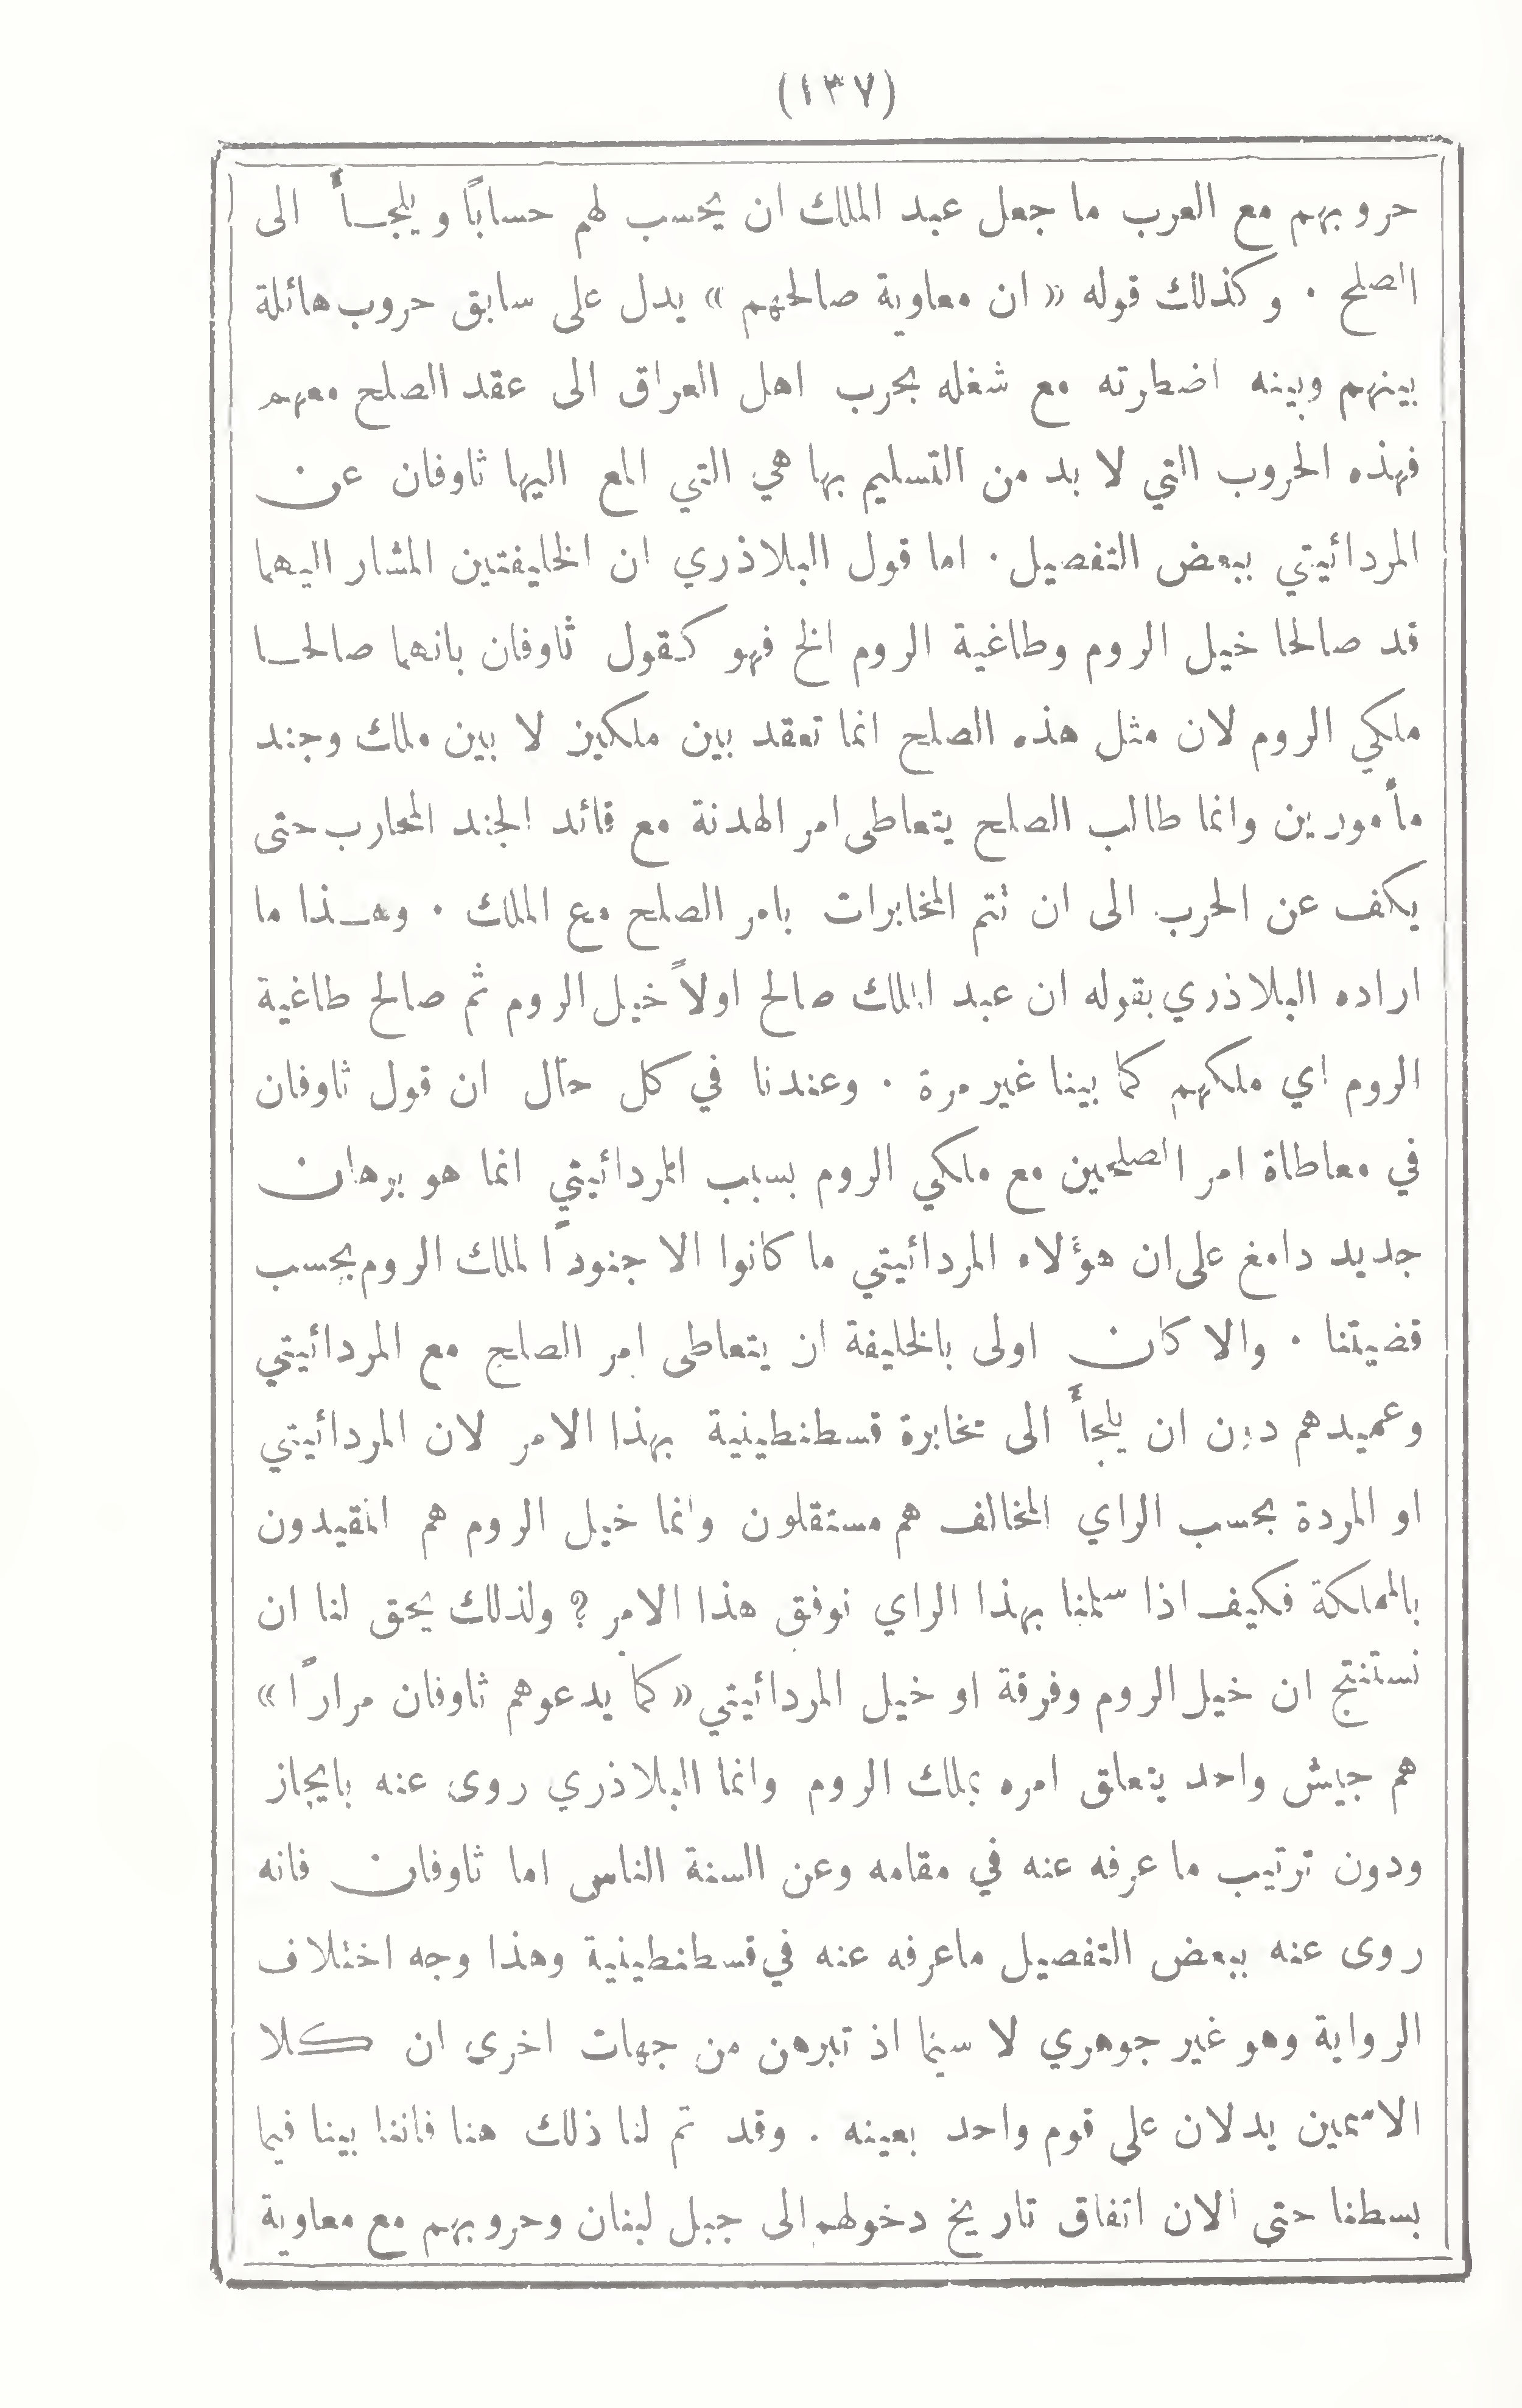 (١٣٧)
حروبهم مع العرب ما جعل عبد الملك ان يحسب لهم حساباً ويلجأ الى
الصلح · وكذلك قوله « ان معاوية صالحهم » يدل على سابق حروب هائلة
بينهم وبينه اضطرته مع شغله بحرب اهل العراق الى عقد الصلح معهم
فهذه الحروب التي لا بد من التسليم بها هي التي المع اليها ثاوفان عن
المردائيتي ببعض التفصيل · اما قول البلاذري ان الخليفتين المشار اليهما
قد صالحا خيل الروم وطاغية الروم الخ فهو كقول ثاوفان بانهما صالحا
ملكي الروم لان مثل هذه الصلح انما تعقد بين ملكين لا بين ملك وجند
مأمورين وانما طالب الصلح يتعاطى امر الهدنة مع قائد الجند المحارب حتى
يكف عن الحرب الى ان تتم المخابرات بامر الصلح مع الملك · وهذا ما
اراده البلاذري بقوله ان عبد الملك صالح اولاً خيل الروم ثم صالح طاغية
الروم اي ملكهم كما بينا غير مرة · وعندنا في كل حال ان قول ثاوفان
في معاطاة امر الصلحين مع ملكي الروم بسبب المردائيتي انما هو برهان
جديد دامغ على ان هؤلاء المردائيتي ما كانوا الا جنوداً لملك الروم بحسب
قضيتنا · والا كان اولى بالخليفة ان يتعاطى امر الصلح مع المردائيتي
وعميدهم دون ان يلجأ الى مخابرة قسطنطينية بهذا الامر لان المردائيتي
او المردة بحسب الراي المخالف هم مستقلون وانما خيل الروم هم المقيدون
بالمملكة فكيف اذا سلمنا بهذا الراي نوفق هذا الامر ؟ ولذلك يحق لنا ان
نستنتج ان خيل الروم وفرقة او خيل المردائيتي « كما يدعوهم ثاوفان مراراً »
هم جيش واحد يتعلق امره بملك الروم وانما البلاذري روى عنه بايجاز
ودون ترتيب ما عرفه عنه في مقامه وعن السنة الناس اما ثاوفان فانه
روى عنه ببعض التفصيل ماعرفه عنه في قسطنطينية وهذا وجه اختلاف
الرواية وهو غير جوهري لا سيما اذ تبرهن من جهات اخرى ان كلا
الاسمين يدلان على قوم واحد بعينه . وقد تم لنا ذلك هنا فاننا بينا فيما
بسطنا حتى الان اتفاق تاريخ دخولهم الى جبل لبنان وحروبهم مع معاوية